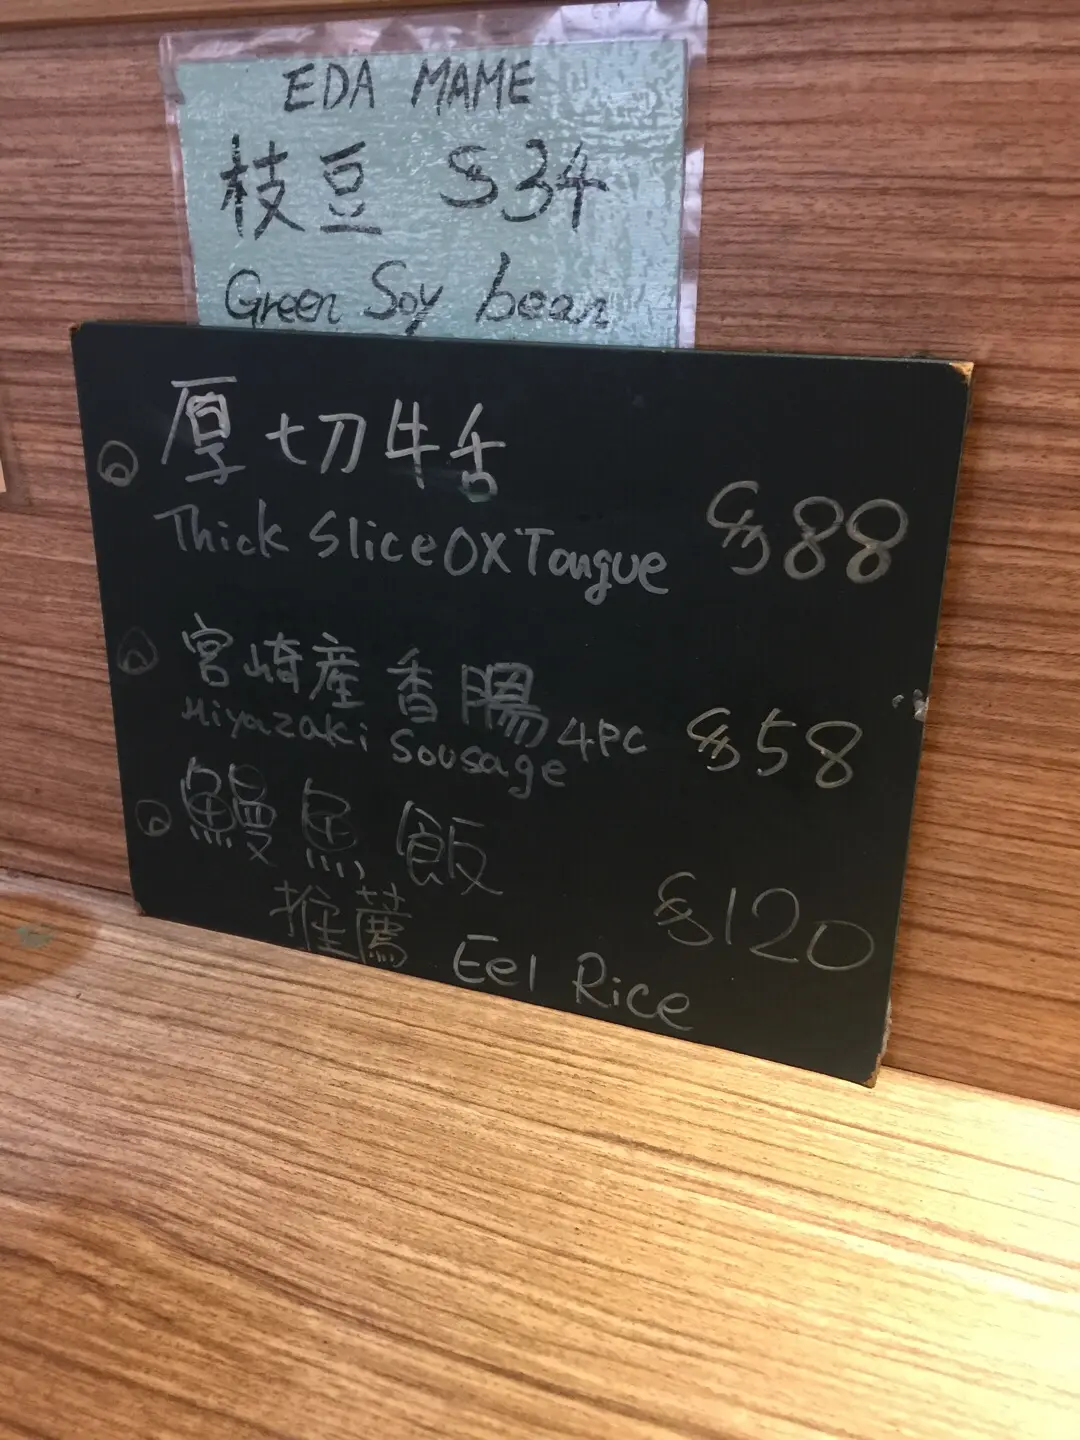 EDA MAME
枝豆 $34
Green Soy bean
厚切牛舌
Thick Slice OX Tongue $88
宮崎産香腸
Miyazaki Sousage 4PC $58
鰻魚飯
推薦 Eel Rice $120